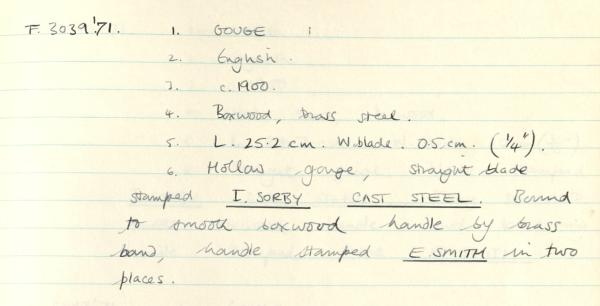 F. 3039'.71. 1. GOUGE
2. English.
3. c. 1900.
4. Boxwood, brass steel.
5. L. 25.2 cm. W. blade. 0.5. cm. (1/4").
6. Hollow gouge, straight blade
stamped I. SORBY CAST STEEL. Bound
to smooth boxwood handle by brass
band, handle stamped E. SMITH in two
places.